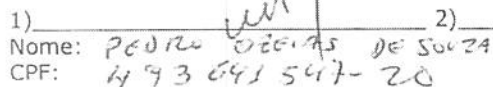 1)____________________ 2)__
Nome: PEDRO OZEIAS DE SOUZA
CPF: 493 641 547-20